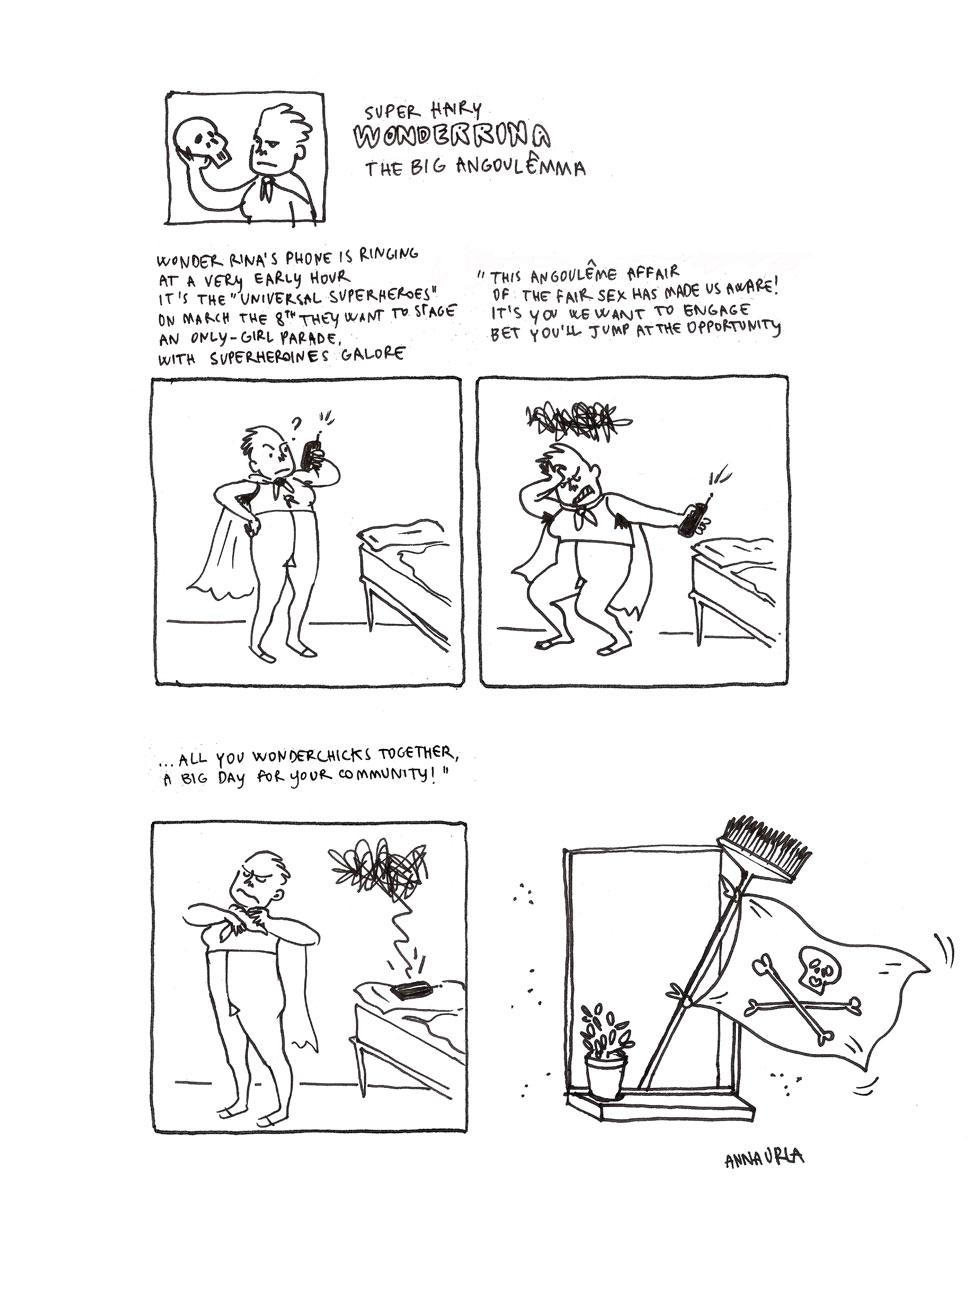 SUPER HAIRY
WONDERRINA
THE BIG ANGOULÊMMA
WONDER RINA'S PHONE IS RINGING
AT A VERY EARLY HOUR
IT'S THE "UNIVERSAL SUPERHEROES"
ON MARCH THE 8TH THEY WANT TO STAGE
AN ONLY-GIRL PARADE,
WITH SUPERHEROINES GALORE
"THIS ANGOULÊME AFFAIR
OF THE FAIR SEX HAS MADE US AWARE!
IT'S YOU WE WANT TO ENGAGE
BET YOU'LL JUMP AT THE OPPORTUNITY
?
...ALL YOU WONDERCHICKS TOGETHER,
A BIG DAY FOR YOUR COMMUNITY!"
ANNA URLA